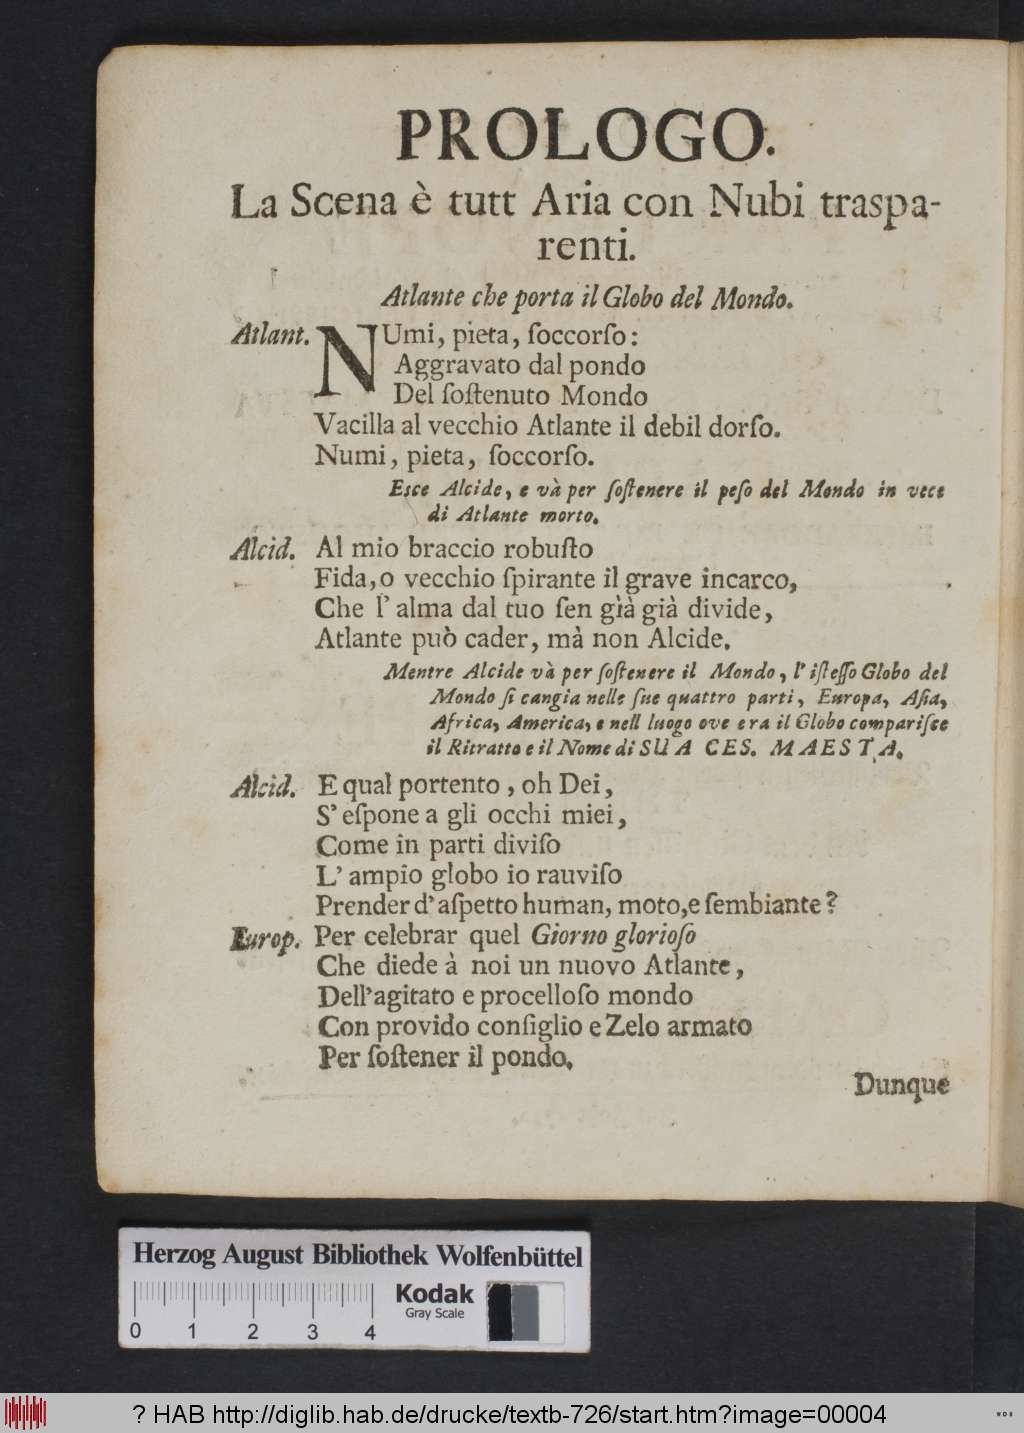 PROLOGO.
La Scena è tutt Aria con Nubi traspa-
renti.
Atlante che porta il Globo del Mondo.
Atlant. NUmi, pieta, ſoccorſo:
Aggravato dal pondo
Del ſoſtenuto Mondo
Vacilla al vecchio Atlante il debil dorſo.
Numi, pieta, ſoccorſo.
Eſce Alcide, e và per ſoſtenere il peſo del Mondo in vece
di Atlante morto.
Alcid. Al mio braccio robuſto
Fida, o vecchio ſpirante il grave incarco,
Che l' alma dal tuo ſen già già divide,
Atlante può cader, mà non Alcide.
Mentre Alcide và per ſoſtenere il Mondo, l' iſteſſo Globo del
Mondo ſi cangia nelle ſue quattro parti, Europa, Aſia,
Africa, America, e nell luogo ove era il Globo compariſce
il Ritratto e il Nome di SUA CES. MAESTA.
Alcid. E qual portento, oh Dei,
S' eſpone a gli occhi miei,
Come in parti diviſo
L' ampio globo io rauviſo
Prender d' aſpetto human, moto, e ſembiante?
Europ. Per celebrar quel Giorno glorioſo
Che diede à noi un nuovo Atlante,
Dell' agitato e procelloſo mondo
Con provido conſiglio e Zelo armato
Per ſoſtener il pondo.
Dunque
Herzog August Bibliothek Wolfenbüttel
Kodak
Gray Scale
0 1 2 3 4
? HAB http://diglib.hab.de/drucke/textb-726/start.htm?image=00004